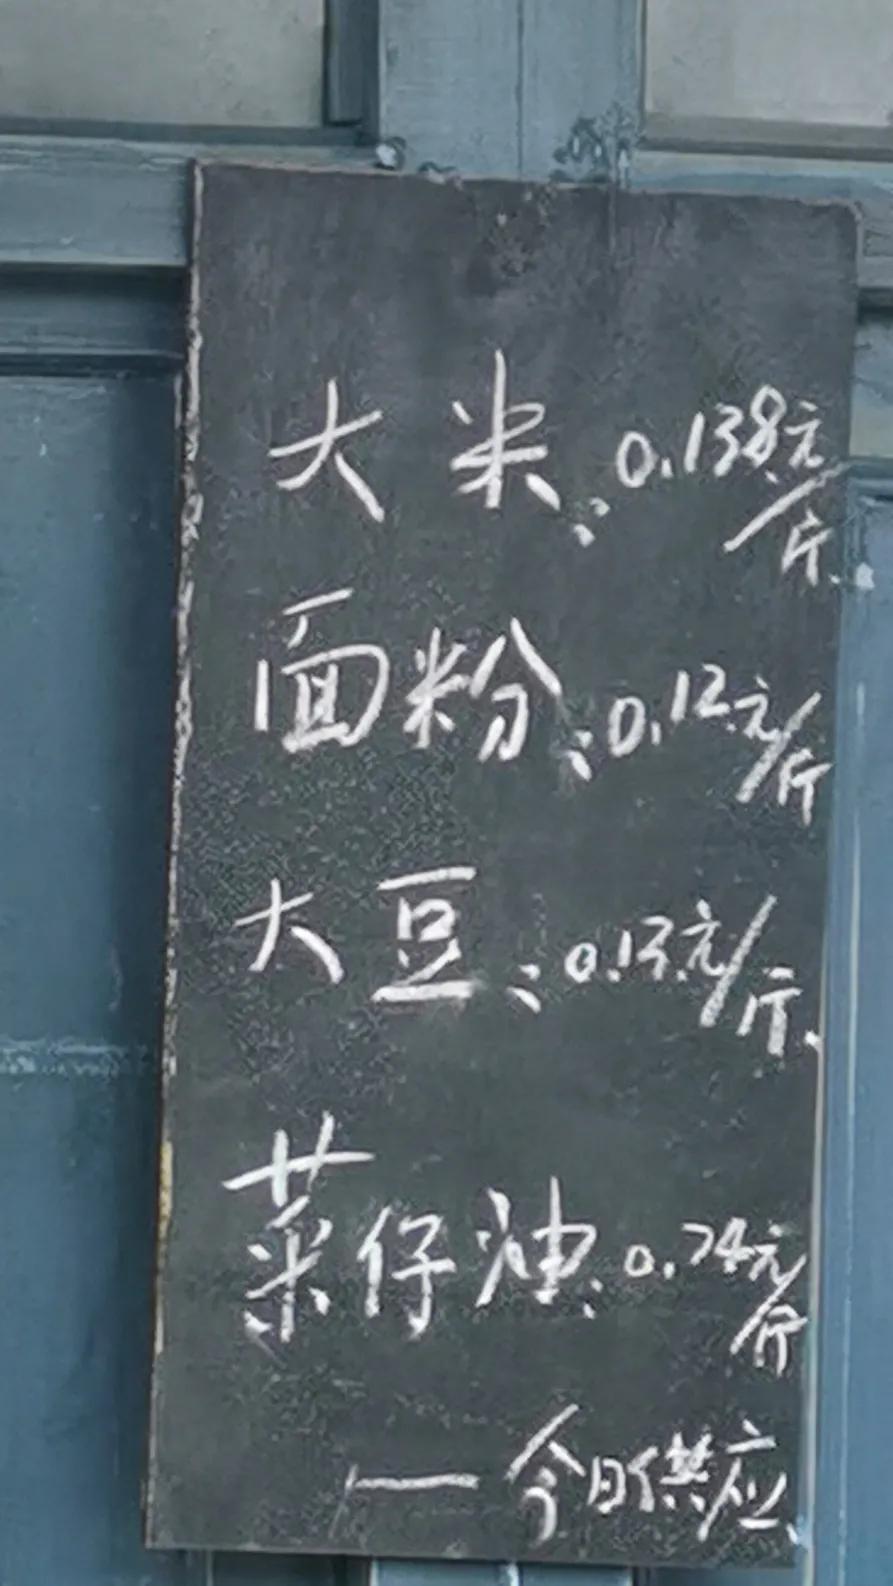 大米:0.138元/斤
面粉:0.12元/斤
大豆:0.13元/斤
菜仔油:0.74元/斤
—今日供应